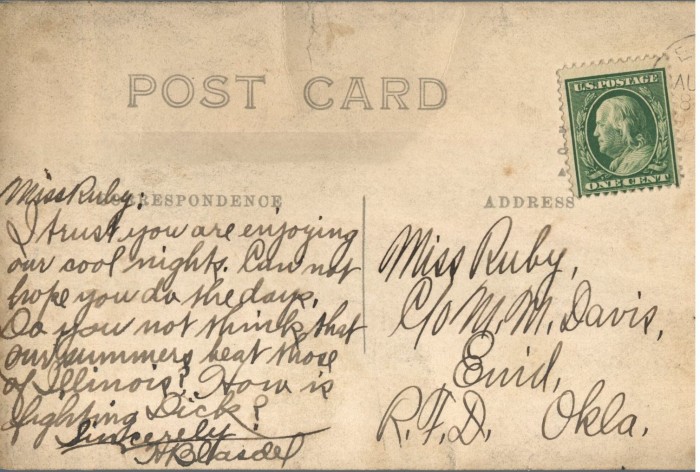 POST CARD
U.S. POSTAGE
ONE CENT
CORRESPONDENCE
ADDRESS
Miss Ruby:
I trust you are enjoying
our cool nights. Can not
hope you do the days.
Do you not think that
our summers beat those
of Illinois? How is
fighting Dick?
Sincerely
Miss Ruby,
C/o M. M. Davis,
Enid,
R.F.D. Okla.